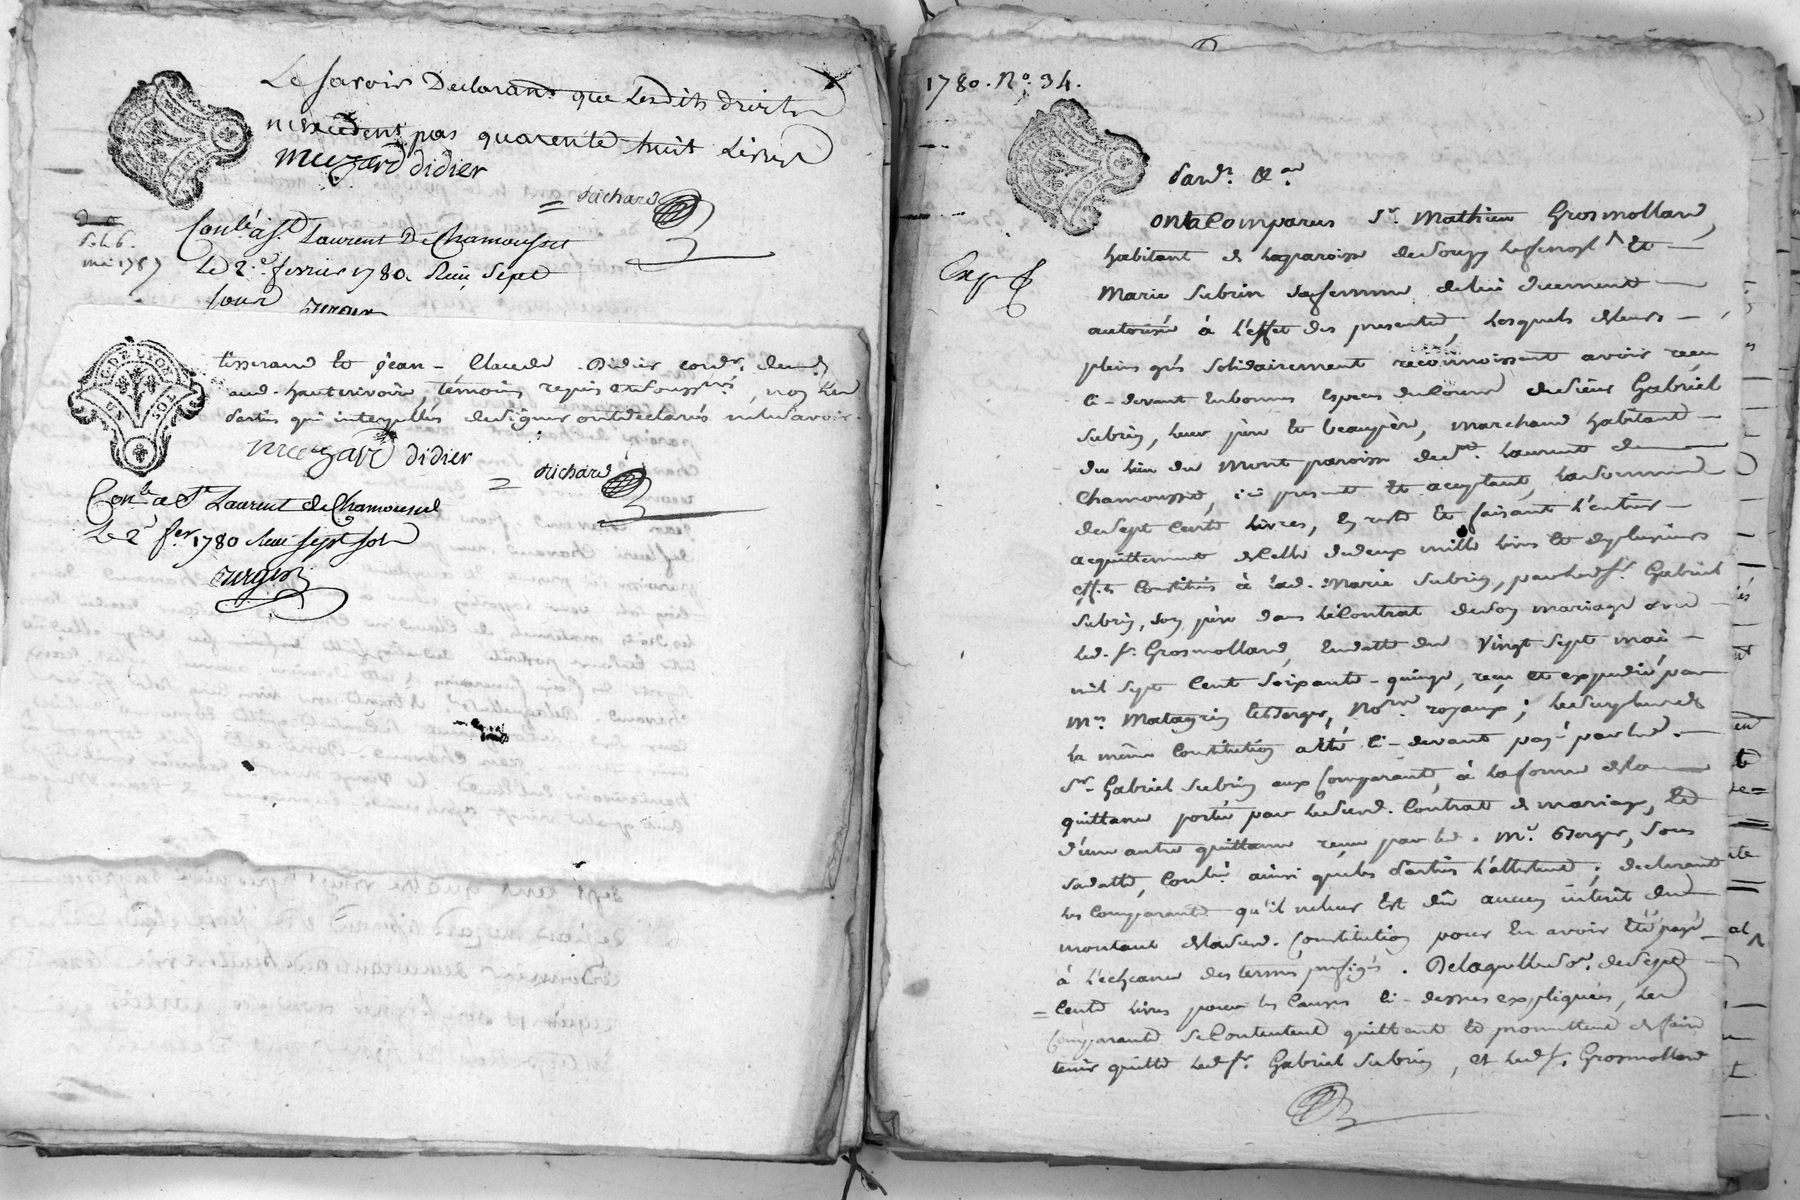 Le savoir Declarant que lesdits droits
n'excedent pas quarente huit Livres
muzard didier
Richard
Conlé a St Laurent De Chamousset
Le 2e fevrier 1780 Reçu Sept
sous
mai 1787
GD DE LYON
UN SOL
tisserand et jean-Claude Didier cordr. demt
aud. hauterivoire, temoins requis et soussnés, non les
parties qui interpellées de signer ont declarés ne le savoir
muzard didier
Richard
Conlé a St Laurent de Chamousset
Le 2e fer 1780 Reçu sept sols
1780. No. 34.
Pardt. &a
Exp
ont Comparus Sr. Mathieu Grosmolland,
habitant de la paroisse de Souzy et
Marie Subrin sa femme de lui duement
autorisée à l'effet des presentes, lesquels de leurs
pleins grés solidairement reconnoissent avoir reçu
ci-devant en bonnes Especes du Cours du Sieur Gabriel
Subrin, leur père et beaupère, marchand habitant
du lieu du Mont paroisse de St. Laurent de
Chamousset, ici present et acceptant, la somme
de sept Cents Livres, en reste et faisant l'entier
acquittement de celle de deux mille livres et de plusieurs
effets Constitués à lad. Marie Subrin, par led. Sr. Gabriel
Subrin, son père dans le Contrat de son mariage avec
led. Sr. Grosmolland, en datte du vingt sept mai
mil sept Cent Soixante-quinze, reçu et expedié par
Mes Matagrin et Berger, Nores royaux; le surplus de
la même Constitution a été ci-devant payé par led.
Sr. Gabriel Subrin aux Comparants, à la forme de la
quittance portée par le susd. Contrat de mariage, et
d'une autre quittance reçue par led. Me. Berger, sous
sa datte, Conlée ainsi que les parties l'attestent; declarant
les Comparants qu'il ne leur est dû aucun interêt du
montant de la susd. Constitution pour en avoir été payé
à l'echeance des termes prefigés. De laquelle so. de sept
Cents livres pour les Causes ci-dessus expliquées, les
Comparants se Contentent quittent et promettent de faire
tenir quitte led. Sr. Gabriel Subrin, et led. Sr. Grosmolland